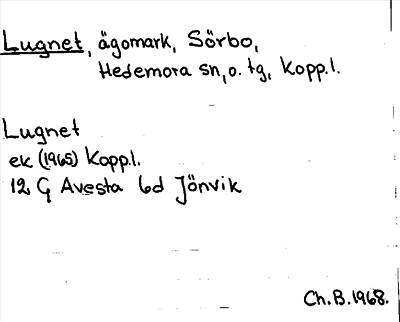 Lugnet, ägomark, Sörbo,
Hedemora sn, o. tg, Kopp.l.
Lugnet
ek (1965) Kopp.l.
12 G Avesta 6d Jönvik
Ch.B.1968.